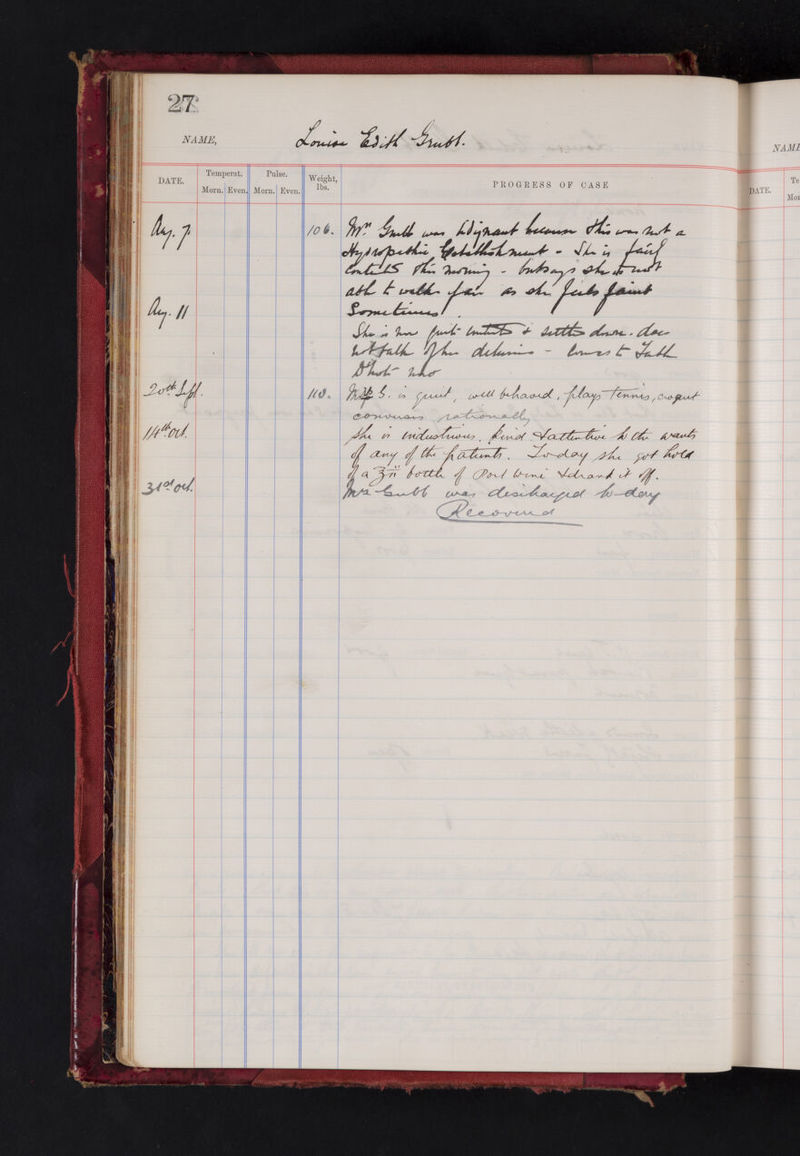 27
NAME, Louisa Edith Grubb.
NAME
DATE. Temperat. Pulse. Weight, lbs. PROGRESS OF CASE
Morn. Even. Morn. Even.
DATE. Te
Mor
Aug. 7 106. Mrs Grubb was indignant because this was not a
Hydropathic Establishment - She is fairly
content this morning - but says she is not
able to walk far as she feels faint
Sometimes.
Aug. 11
She is now quite content & settled down. does
not talk of her delusions - comes to Table
D'hote
20th Sept. 110. Mrs G. is quiet, well behaved, plays tennis, croquet
converses rationally
14th Oct. She is industrious, kind & attentive to the wants
of any of the patients. To-day she got hold
of a bottle of Port Wine & drank it off.
31st Oct. Mrs Grubb was discharged to-day
Recovered